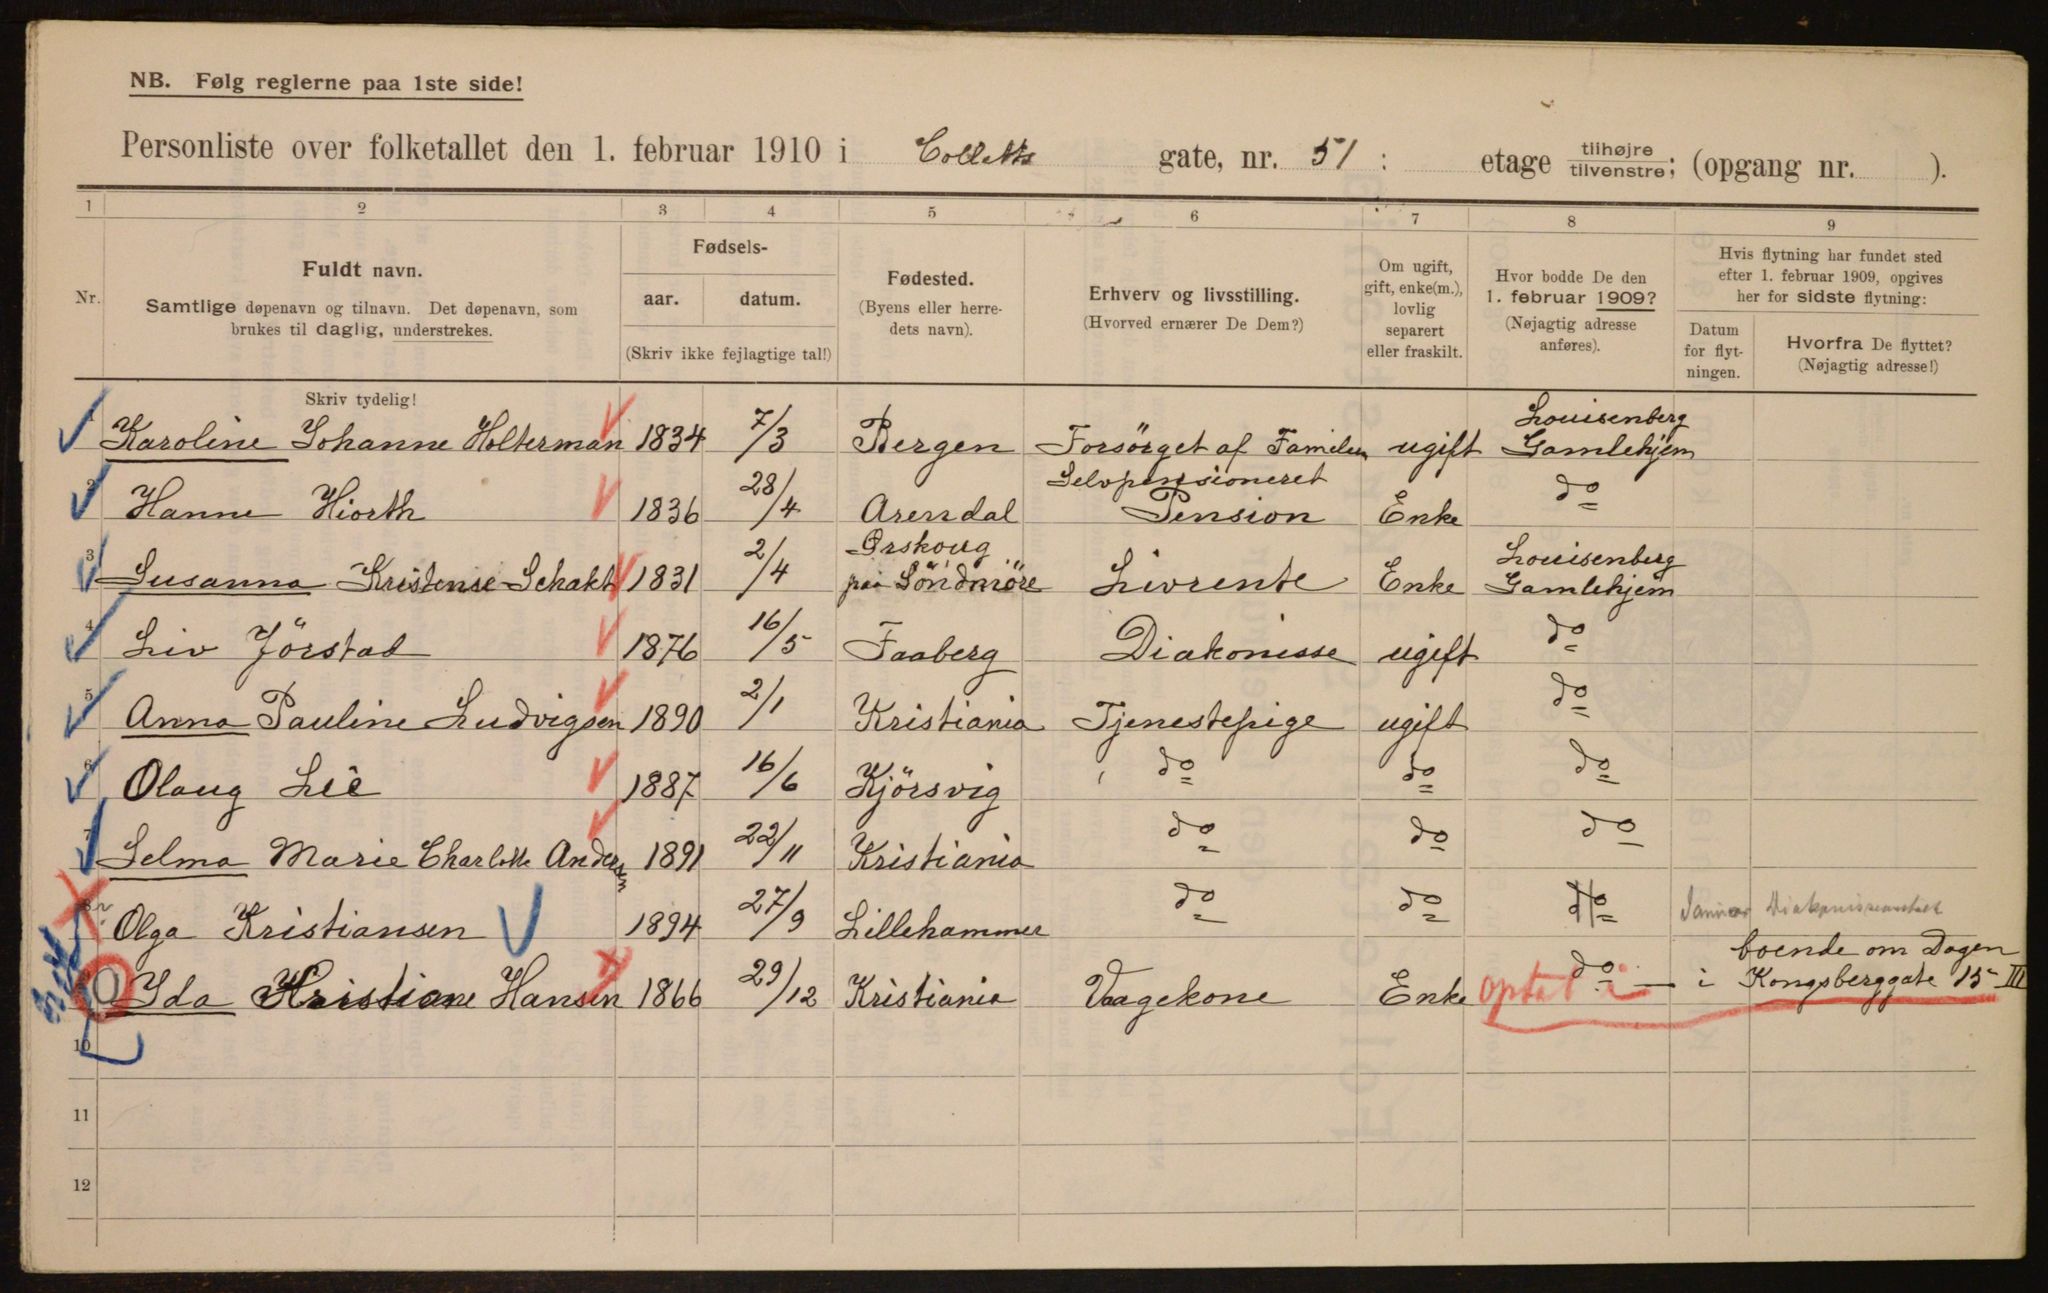 NB. Følg reglerne paa 1ste side!
Personliste over folketallet den 1. februar 1910 i Colletts gate, nr. 51 : etage tilhøjre/tilvenstre; (opgang nr. ).
1 2 3 4 5 6 7 8 9
Nr.
Fuldt navn.
Samtlige døpenavn og tilnavn. Det døpenavn, som
brukes til daglig, understrekes.
Fødsels-
aar. datum.
(Skriv ikke fejlagtige tal!)
Fødested.
(Byens eller herre-
dets navn).
Erhverv og livsstilling.
(Hvorved ernærer De Dem?)
Om ugift,
gift, enke(m.),
lovlig
separert
eller fraskilt.
Hvor bodde De den
1. februar 1909?
(Nøjagtig adresse
anføres).
Hvis flytning har fundet sted
efter 1. februar 1909, opgives
her for sidste flytning:
Datum
for flyt-
ningen.
Hvorfra De flyttet?
(Nøjagtig adresse!)
Skriv tydelig!
Karoline Johanne Holterman 1834 7/3 Bergen Forsörget af Familien ugift Louisenberg Gamlehjem
2 Hanne Hiorth 1836 28/4 Arendal Selvpensioneret Pension Enke do
3 Susanna Kristense Schakt 1831 2/4 Ørskoug paa Söndmöre Livrente Enke Louisenberg Gamlehjem
4 Liv Jörstad 1876 16/5 Faaberg Diakonisse ugift do
5 Anna Pauline Ludvigsen 1890 2/1 Kristiania Tjenestepige ugift do
6 Olaug Lie 1887 16/6 Kjörsvig do do do
7 Selma Marie Charlotte Andersen 1891 22/11 Kristiania do do do
Olga Kristiansen 1894 27/9 Lillehammer do do do Januar
Ida Kristiane Hansen 1866 29/12 Kristiania Vaagekone Enke do boende om Dagen
i Kongsberggate 15 III
10
11
12